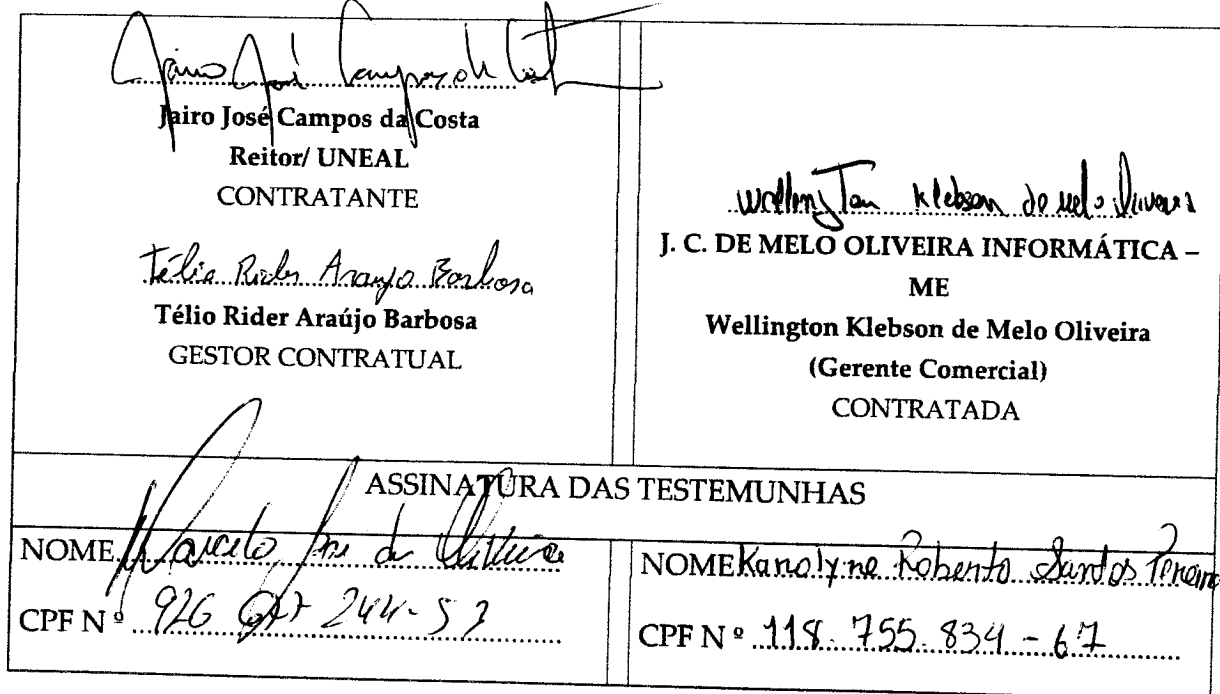 Jairo José Campos da Costa
Jairo José Campos da Costa
Reitor/ UNEAL
CONTRATANTE
Télio Rider Araujo Barbosa
Télio Rider Araújo Barbosa
GESTOR CONTRATUAL
Wellington Klebson de Melo Oliveira
J. C. DE MELO OLIVEIRA INFORMÁTICA –
ME
Wellington Klebson de Melo Oliveira
(Gerente Comercial)
CONTRATADA
ASSINATURA DAS TESTEMUNHAS
NOME Marcelo José de Oliveira
CPF Nº 926 244-53
NOME Karolyne Roberto Santos Pereira
CPF Nº 118.755.834-67